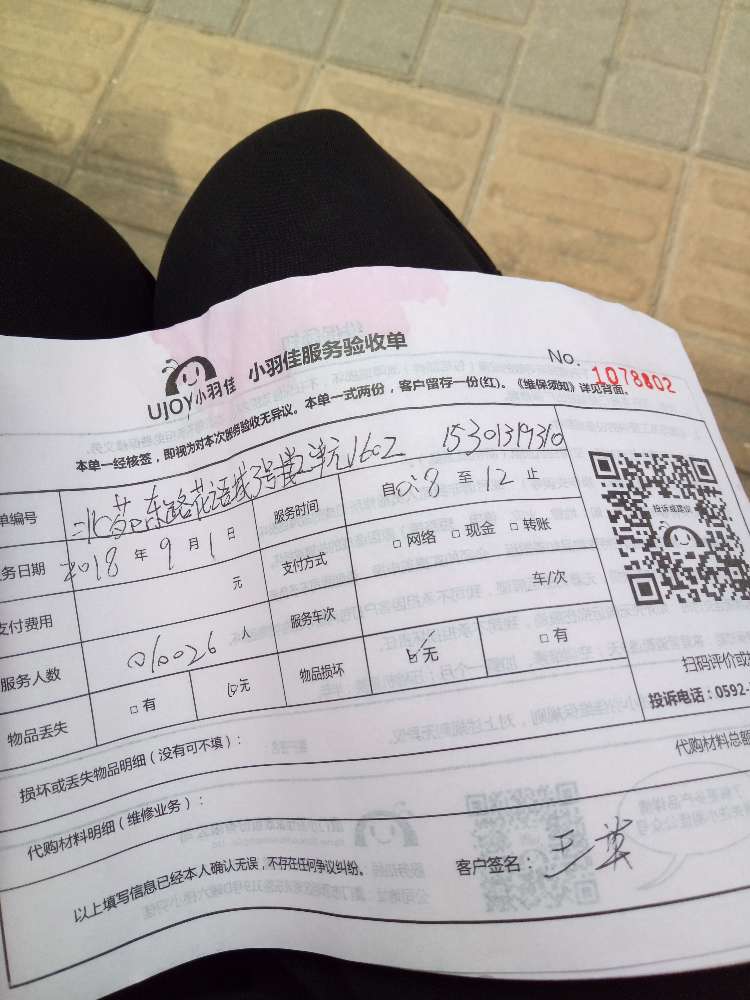 UJOY小羽佳 小羽佳服务验收单 No. 1078802
本单一经核签，即视为对本次服务验收无异议。本单一式两份，客户留存一份(红)。《维保须知》详见背面。
单编号 东路花语城3号楼2单元1602 15301319310
务日期 2018 年 9 月 1 日 服务时间 自 8 至 12 止
支付费用 元 支付方式 □ 网络 □ 现金 □ 转账
服务人数 010026 人 服务车次 车/次
物品丢失 □ 有 □ 无 物品损坏 □ 无 □ 有
投诉或建议
扫码评价或
投诉电话：0592-
损坏或丢失物品明细（没有可不填）：
代购材料明细（维修业务）： 代购材料总额
以上填写信息已经本人确认无误，不存在任何争议纠纷。 客户签名： 王